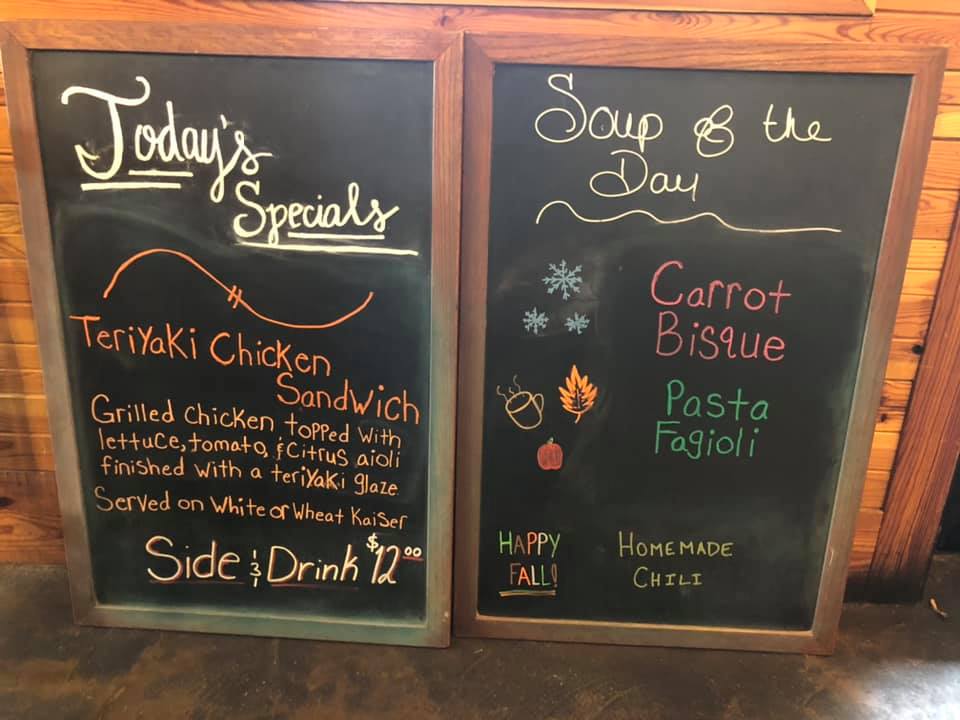 Today's
Specials
Teriyaki Chicken
Sandwich
Grilled Chicken topped with
lettuce, tomato, & citrus aioli
finished with a teriyaki glaze
Served on White or Wheat Kaiser
Side & Drink $12.00
Soup of the
Day
Carrot
Bisque
Pasta
Fagioli
HAPPY
FALL!
HOMEMADE
CHILI